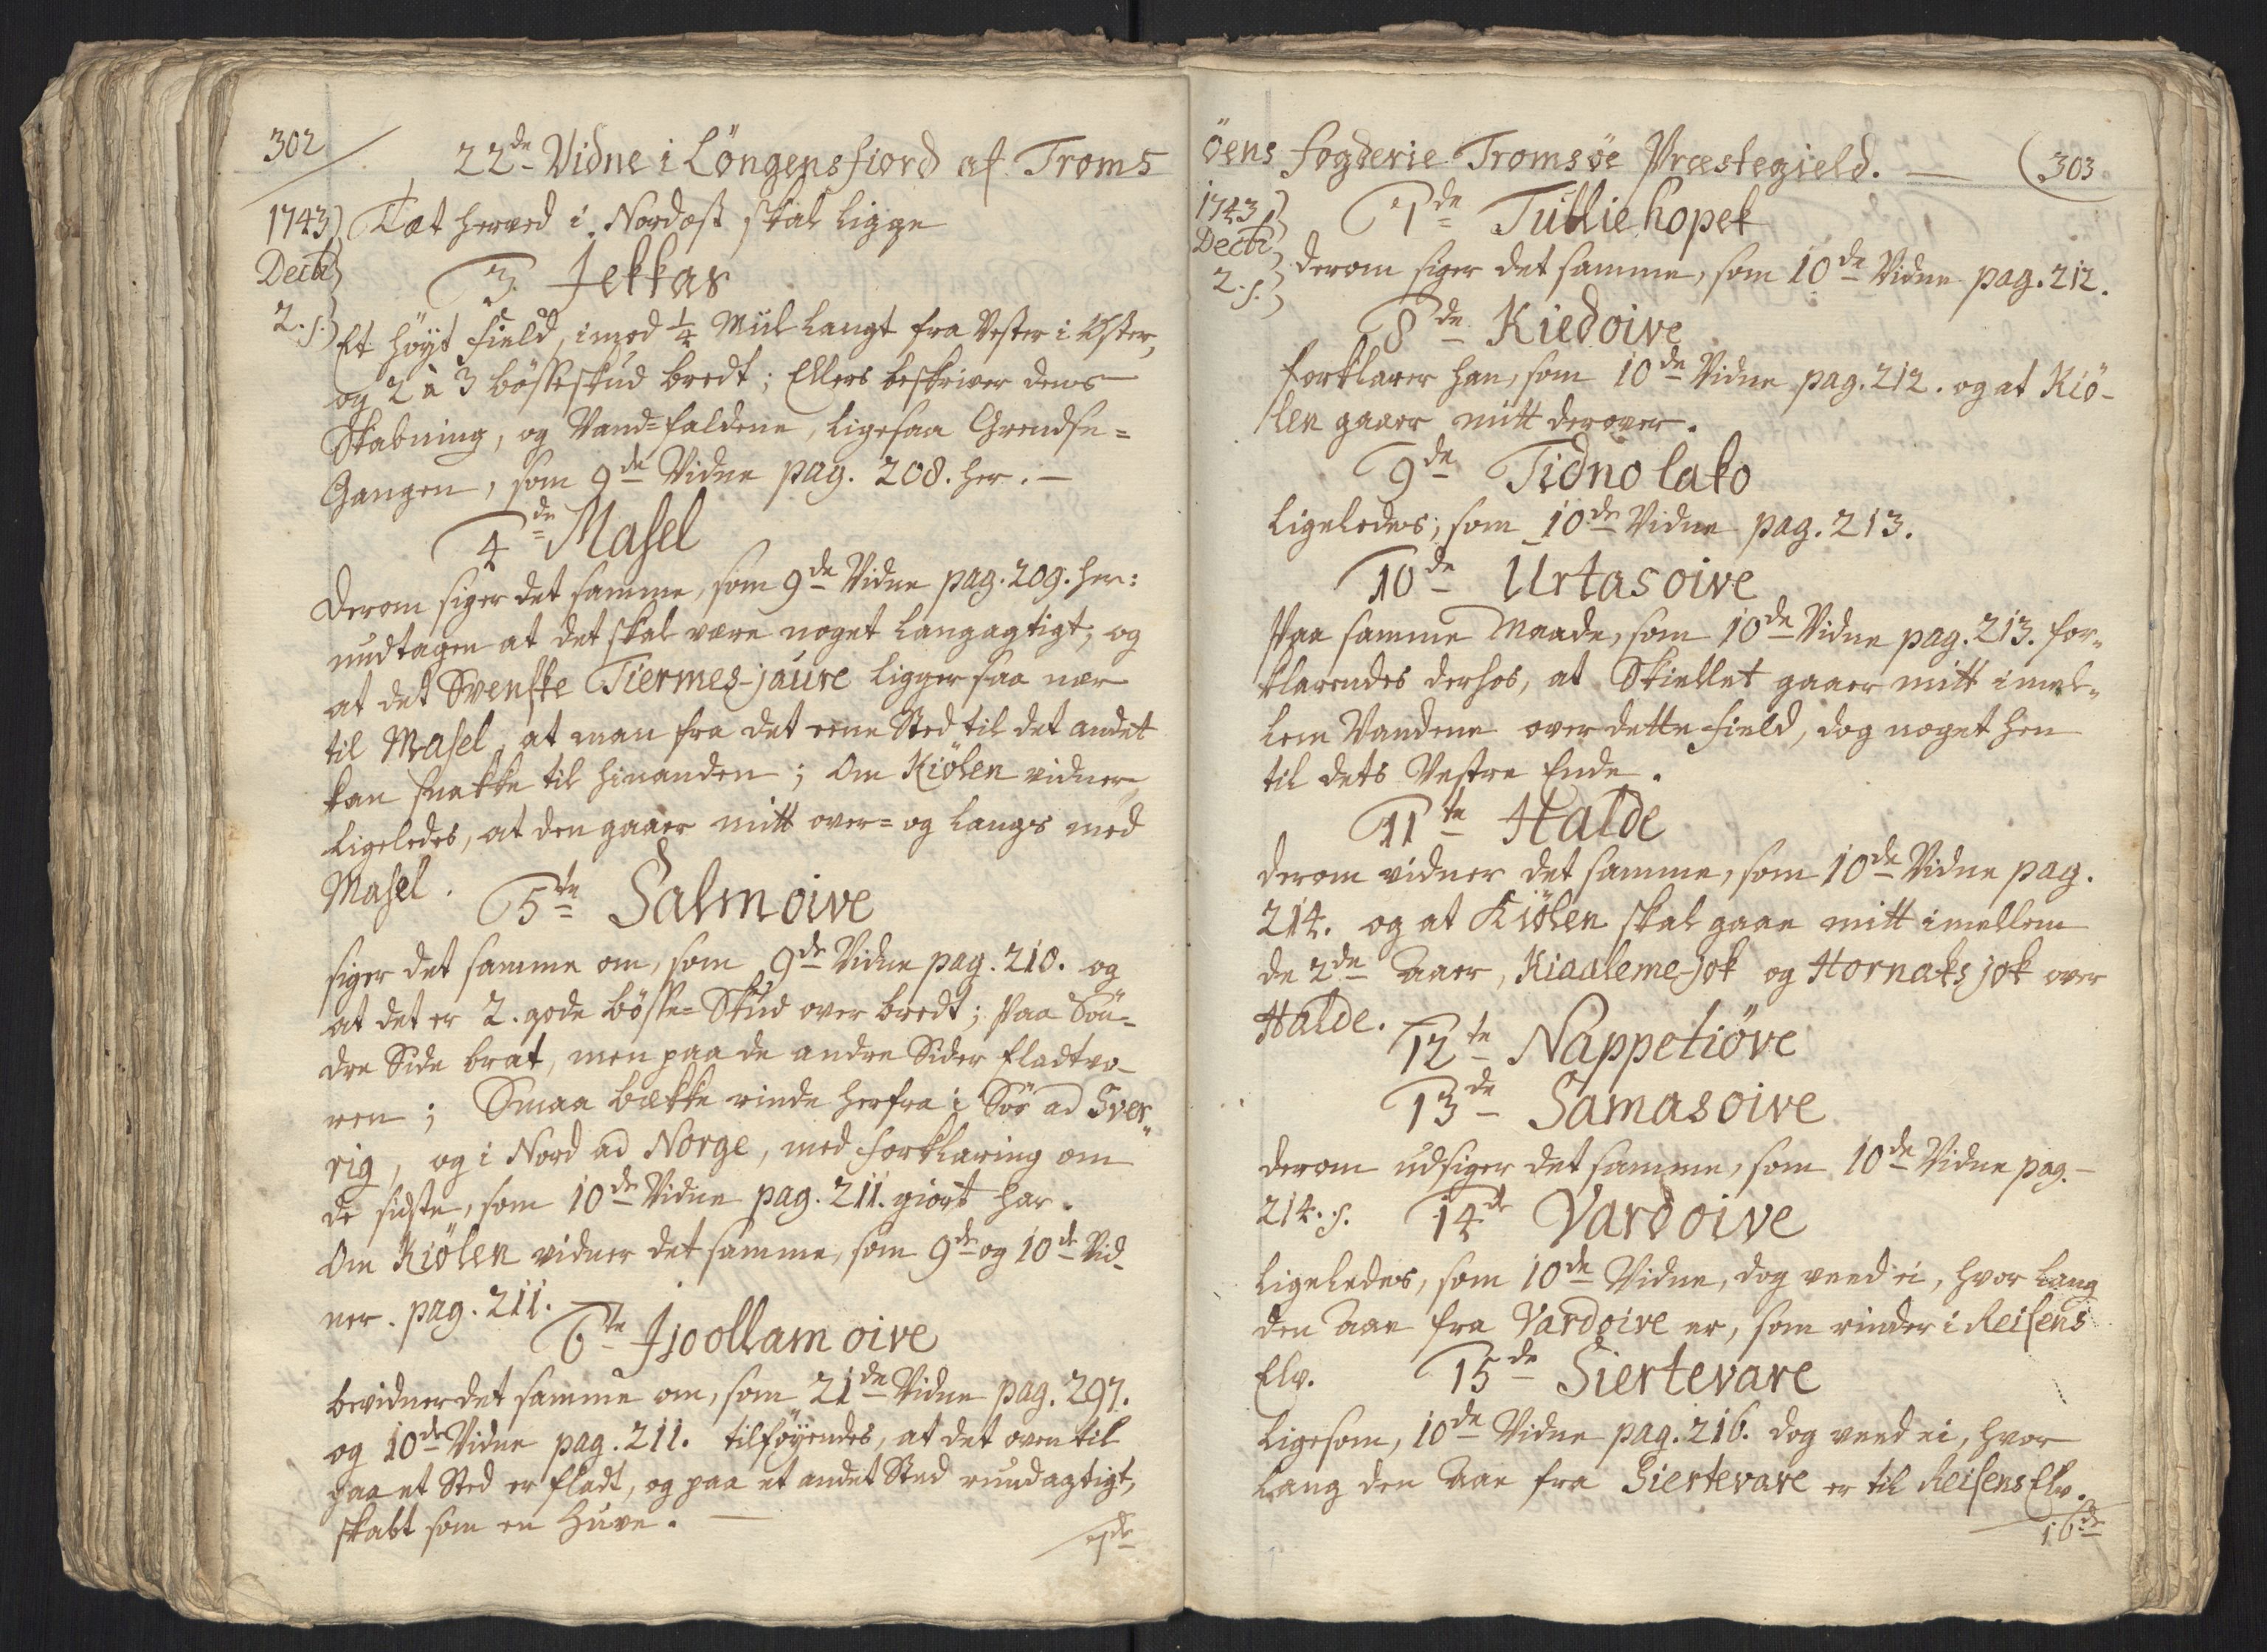 302
22de Vidne i Löngensfiord af Troms
1743
Decbr
2. s.
Tæt herved i Nordost skal ligge
3. Jekkas
Et höyt Field, imod 1/4 Miil langt fra Vester i Öster,
og 2 à 3 bösseskud bredt; Ellers beskriver dens
Skabning, og Vand=faldene, ligesaa Grendse=
Gangen, som 9de Vidne pag. 208. her. —
4de Masel
Derom siger det samme, som 9de Vidne pag. 209. her:
undtagen at det skal være noget langagtigt; og
at det Svenske Tiermes-jaure ligger saa nær
til Masel, at man fra det eene Sted til det andet
kan snakke til hinanden; Om Kiölen vidner
ligeledes, at den gaaer mitt over= og langs med
Masel.
5te Salmoive
siger det samme om, som 9de Vidne pag. 210. og
at det er 2. gode bösse=Skud over bredt; Paa Sön-
dre Side brat, men paa de andre Sider fladvo-
ren; Smaa bække rinde herfra i Sör ad Sver-
rig, og i Nord ad Norge, med forklaring om
de sidste, som 10de Vidne pag. 211. giort har.
Om Kiölen vidner det samme, som 9de og 10de Vid-
ner. pag. 211.
6te Ijoollamoive
bevidner det samme om, som 21de Vidne pag. 297.
og 10de Vidne pag. 211. tilföyendes, at det oven til
paa et Sted er fladt, og paa et andet Sted rundagtigt,
skabt som en Huve. —
7de
öens Fogderie Tromsöe Præstegield. —
303
1743
Decbr
2. s.
7de Tulliehopek
derom siger det samme, som 10de Vidne pag. 212.
8de Kiedoive
forklarer han, som 10de Vidne pag. 212. og at Kiö-
len gaaer mitt derover.
9de Tidnolako
ligeledes, som 10de Vidne pag. 213.
10de Urtasoive
Paa samme Maade, som 10de Vidne pag. 213. for-
klarendes derhos, at Skiellet gaaer mitt imel-
lem Vandene over dette Field, dog noget hen
til dets Vestre Ende.
11te Halde
derom vidner det samme, som 10de Vidne pag.
214. og at Kiölen skal gaae mitt imellem
de 2de Aaer, Kiaaleme-jok og Hornaksjok over
Halde.
12te Nappetiöve
13de Samasoive
derom udsiger det samme, som 10de Vidne pag.
214. s.
14de Vardoive
ligeledes, som 10de Vidne, dog veed ei, hvor lang
den Aae fra Vardoive er, som rinder i Reisens
Elv.
15de Siertevare
ligesom, 10de Vidne pag. 216. dog veed ei, hvor
lang den Aae fra Siertevare er til Reisens Elv.
16de